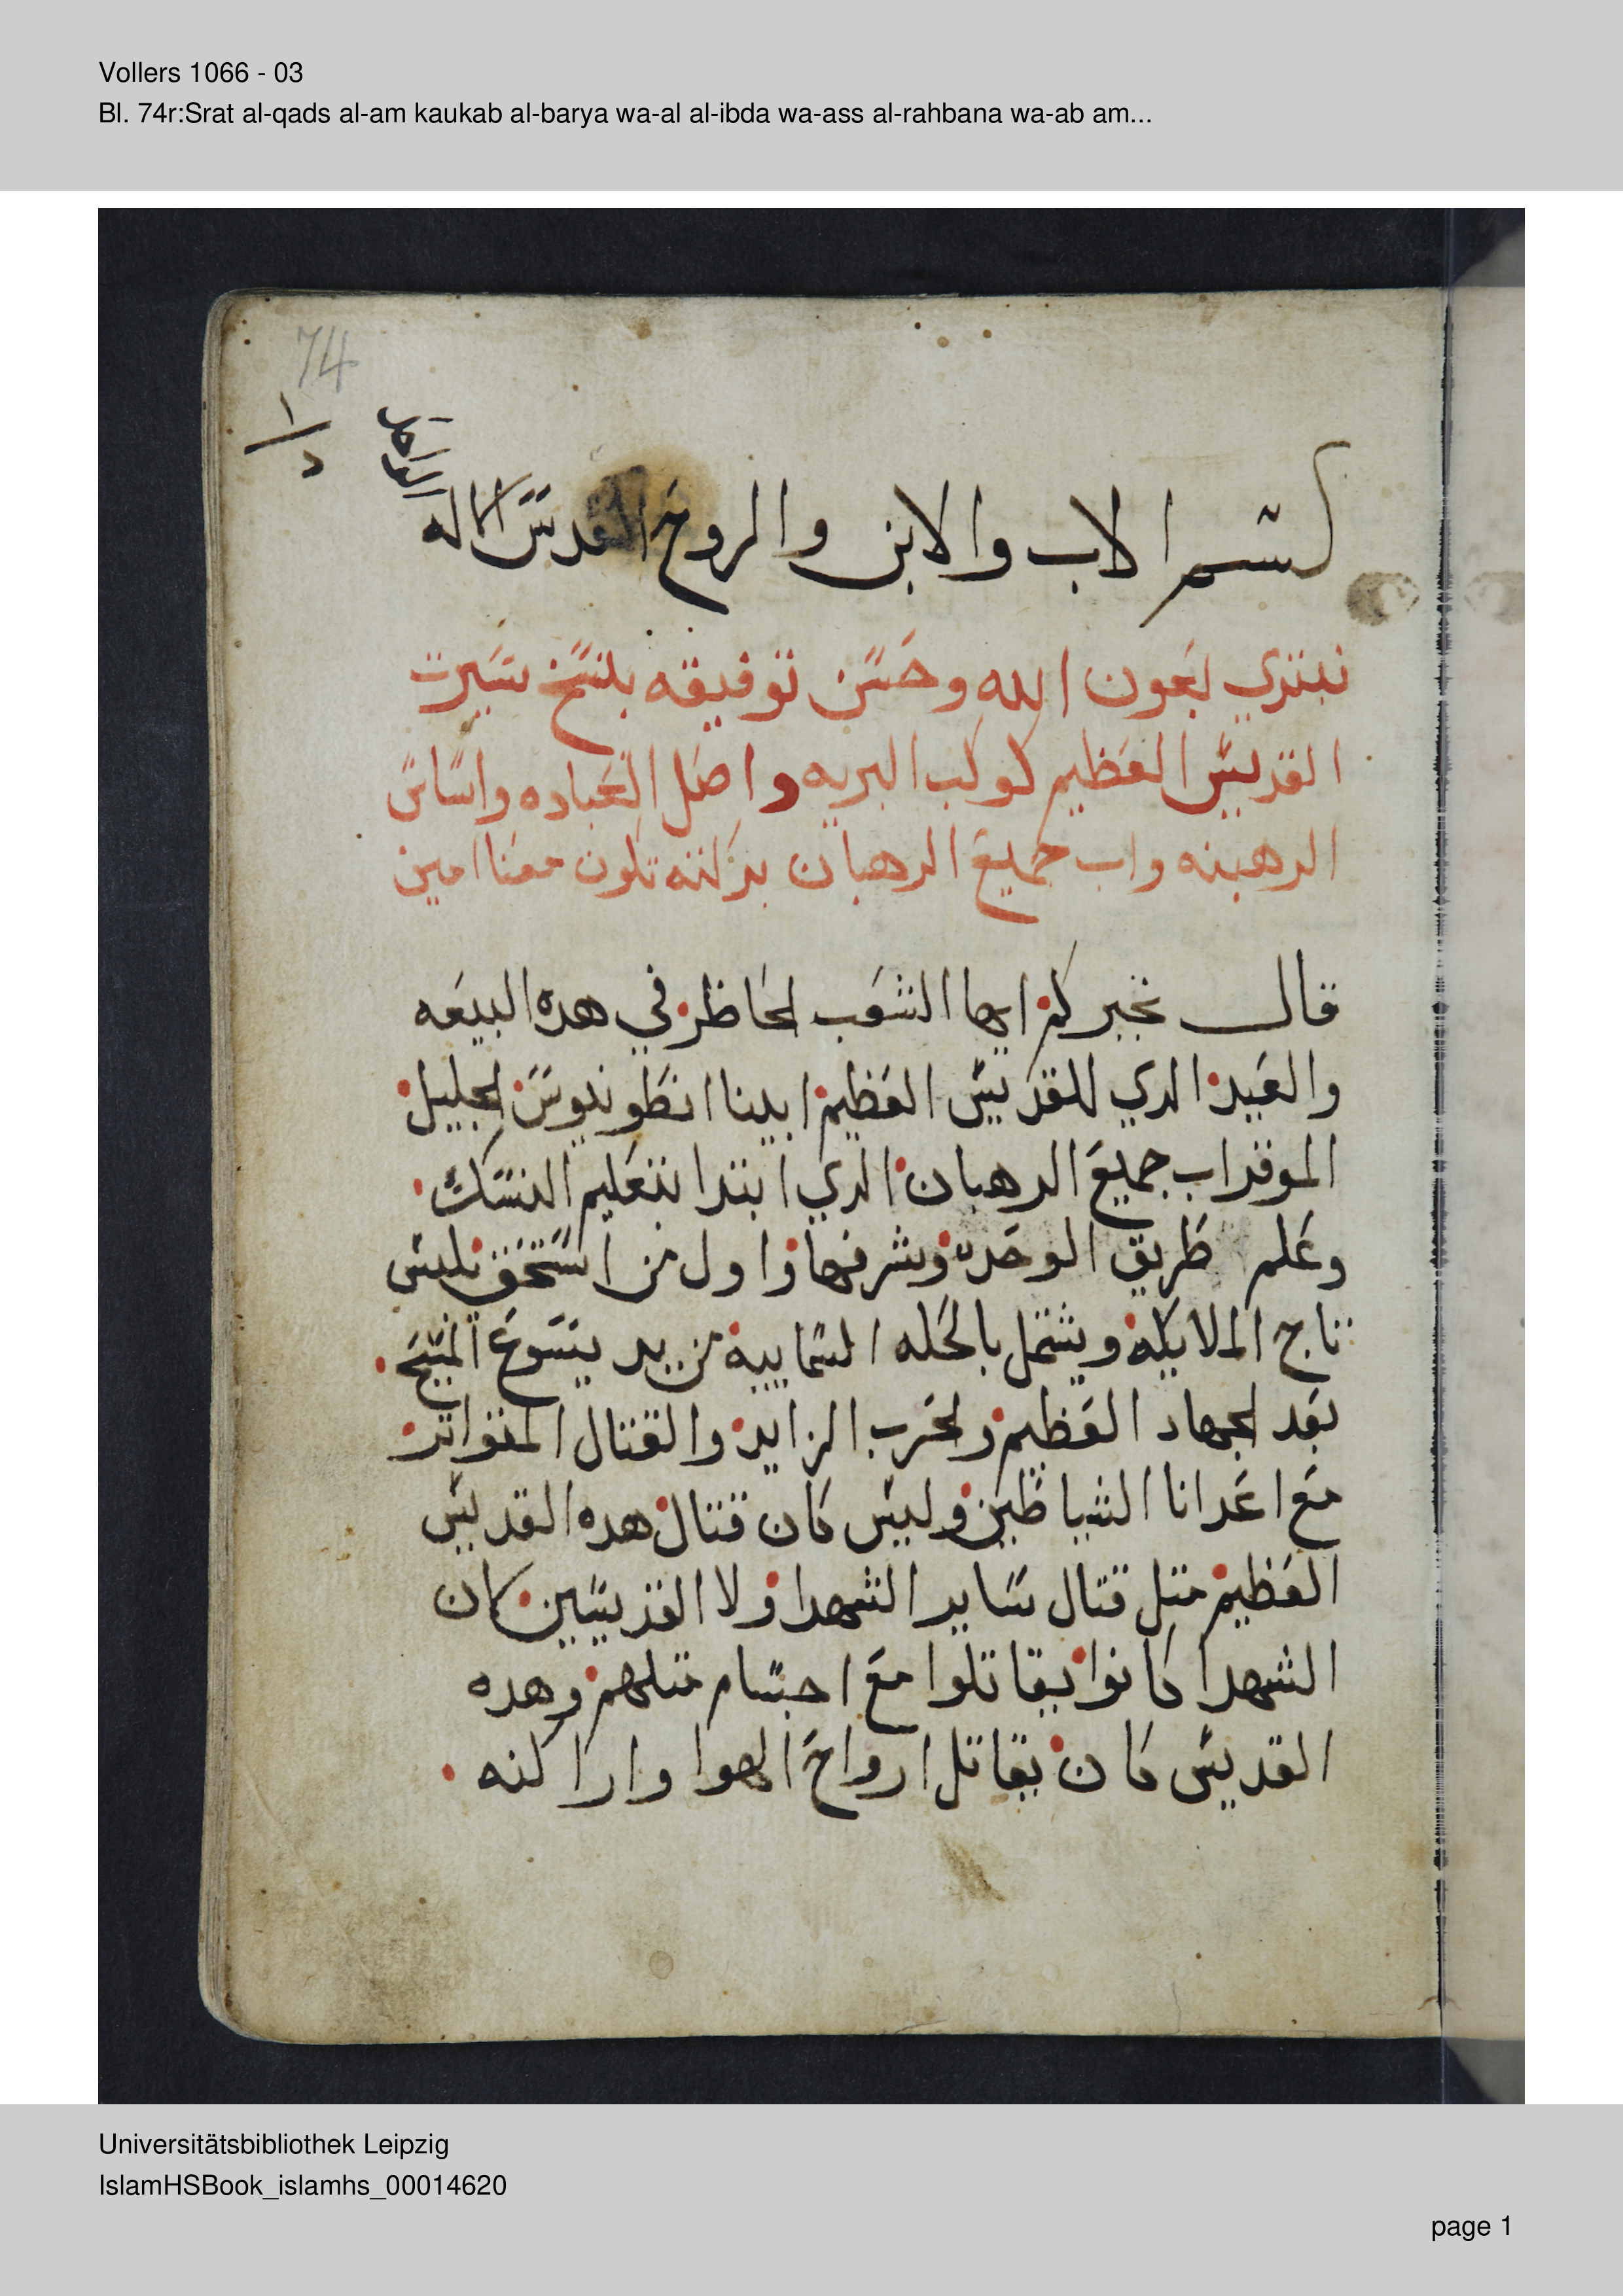 Vollers 1066 - 03
Bl. 74r:Srat al-qads al-am kaukab al-barya wa-al al-ibda wa-ass al-rahbana wa-ab am...
74
بسم الاب والابن والروح القدس الاله الواحد
نبتدي بعون الله وحسن توفيقه بنسخ سيرت
القديس العظيم كوكب البريه واصل العباده واساس
الرهبنه واب جميع الرهبان بركته تكون معنا امين
قال نخبركم ايها الشعب الحاظر في هده البيعه
والعيد الدي للقديس العظيم ابينا انطونيوس الجليل
الموقر اب جميع الرهبان الدي ابتدا بتعليم النسك
وعلم طريق الوحده وشرفها واول من استحق يلبس
تاج الملايكه ويشتمل بالحله السماييه من يد يسوع المسيح
بعد الجهاد العظيم والحرب الزايد والقتال المتواتر
مع اعدانا الشياطين وليس كان قتال هده القديس
العظيم متل قتال ساير الشهدا ولا القديسين كان
الشهدا كانوا يقاتلوا مع اجسام متلهم وهده
القديس كان يقاتل ارواح الهوا واراكنه
Universitätsbibliothek Leipzig
IslamHSBook_islamhs_00014620
page 1